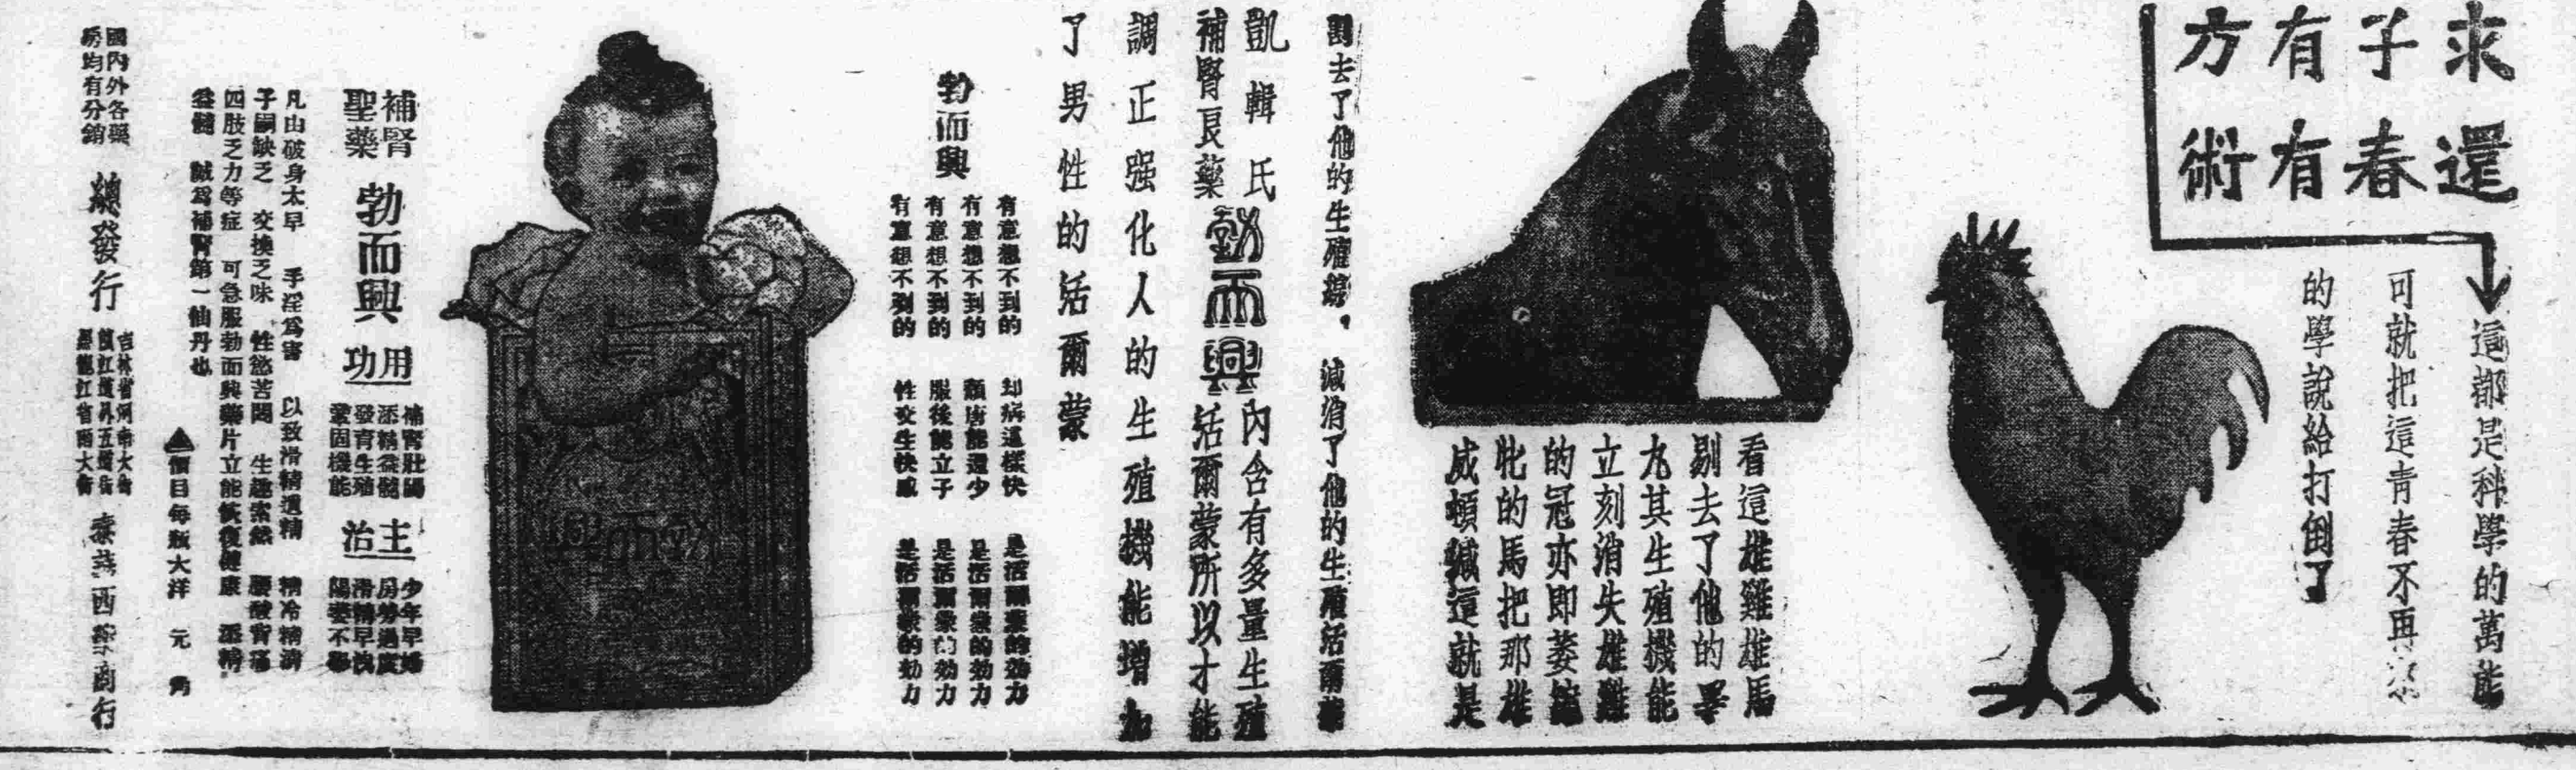 求子有方
還春有術
這都是科學的萬能
可就把這青春不再
的學說給打倒了
看這雄雞雄馬
剔去了他的睪
丸其生殖機能
立刻消失雄雞
的冠亦即萎縮
牝的馬把那雄
威頓減這就是
割去了他的生殖線，減消了他的生殖活爾蒙
凱輯氏
補腎良藥
勃而興
內含有多量生殖
活爾蒙所以才能
調正强化人的生殖機能增加
了男性的活爾蒙
勃而興
有意想不到的 却病這樣快 是活爾蒙的効力
有意想不到的 顏唐能還少 是活爾蒙的効力
有意想不到的 服後能立子 是活爾蒙的効力
有意想不到的 性交生快感 是活爾蒙的効力
勃而興
補腎
聖藥
勃而興
用功
補腎壯陽
添精益髓
發育生殖
鞏固機能
主治
少年早婚
房勞過度
滑精早洩
陽萎不舉
凡由破身太早 手淫為害 以致滑精遺精 精冷精清
子嗣缺乏 交換乏味 性慾苦悶 生趣索然 腰酸背痛
四肢乏力等症 可急服勃而興藥片立能恢復健康 添精
益髓 誠為補腎第一仙丹也
▲價目每瓶大洋 元 角
國內外各藥
房均有分銷
總發行
吉林省河南大街
龍江道界五道街
黑龍江省南大街
西藥商行